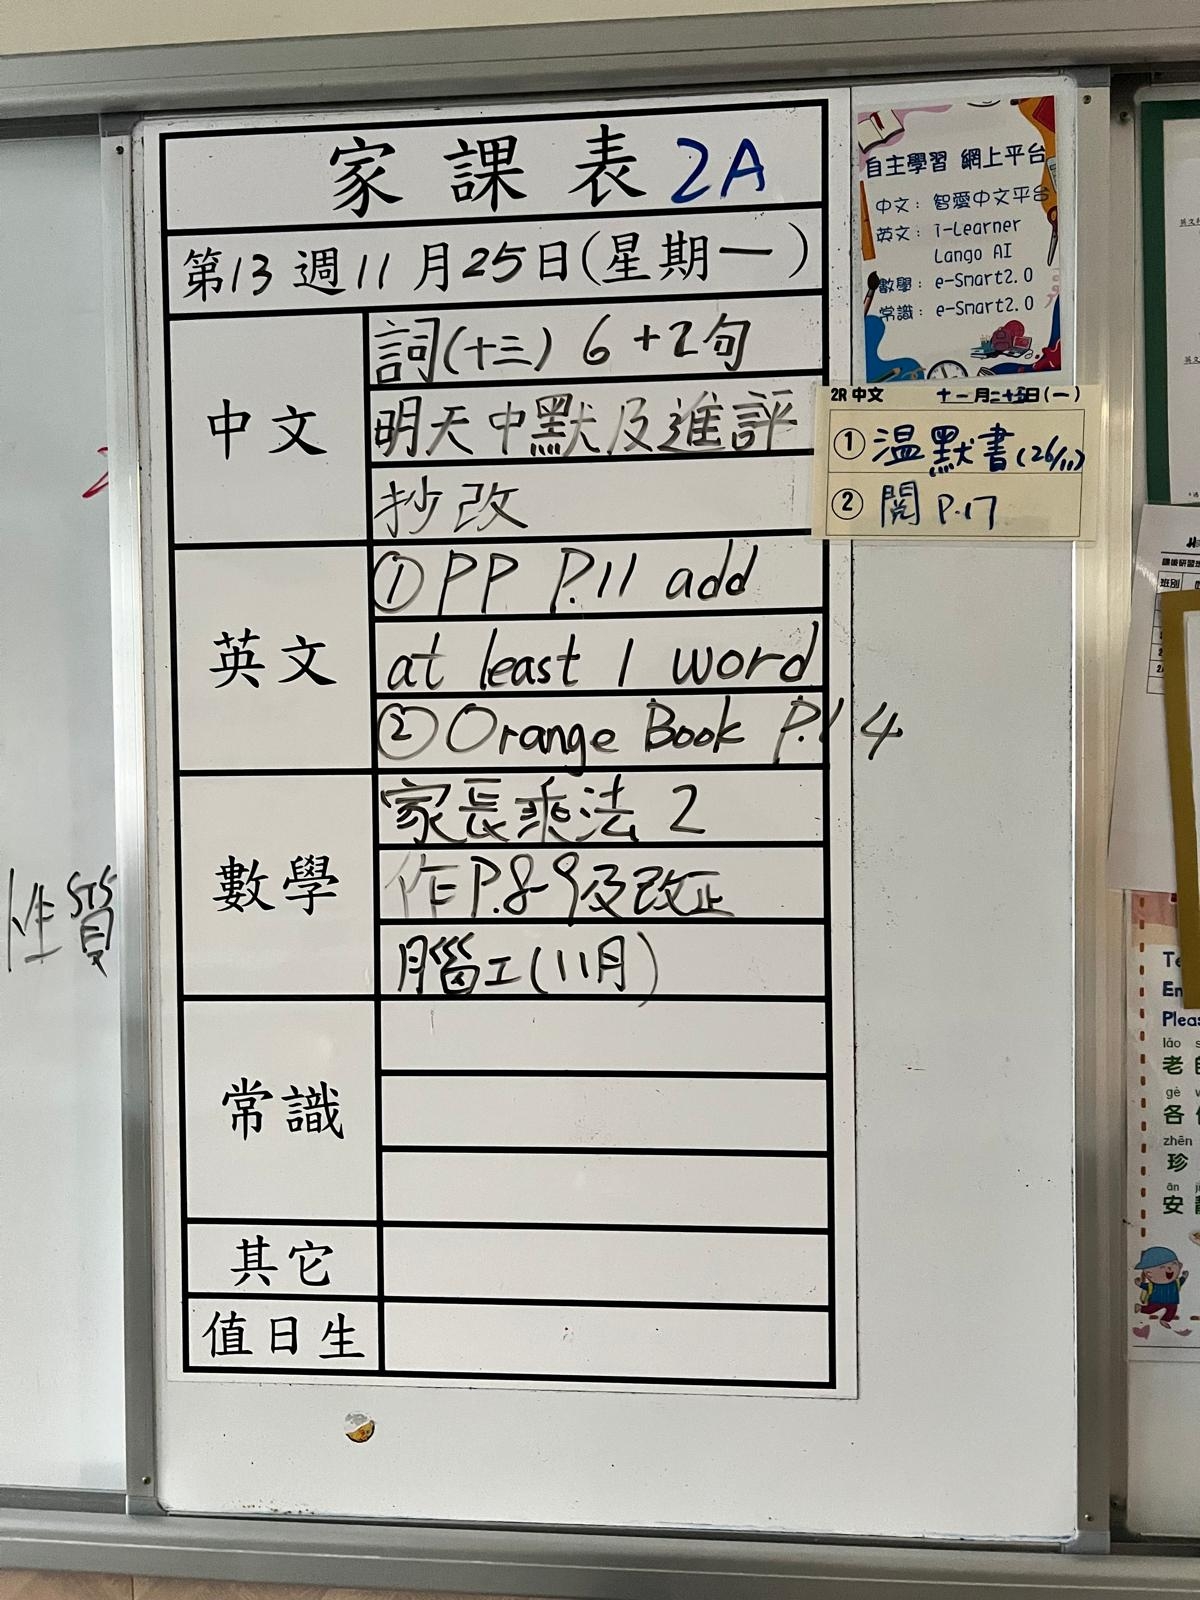 家課表 2A
第13週11月25日(星期一)
中文
詞(十三) 6+2句
明天中默及進評
抄改
英文
① PP P.11 add
at least 1 word
② Orange Book P.14
數學
家長乘法 2
作P.8-9及改正
腦工(11月)
常識
其它
值日生
自主學習 網上平台
中文：智愛中文平台
英文：i-Learner
Lango AI
數學：e-Smart2.0
常識：e-Smart2.0
2R 中文 十一月二十五日(一)
① 温默書(26/11)
② 閱 P.17
性質
班別
Pleas
lǎo
老
gè
各
zhēn
珍
ān
安